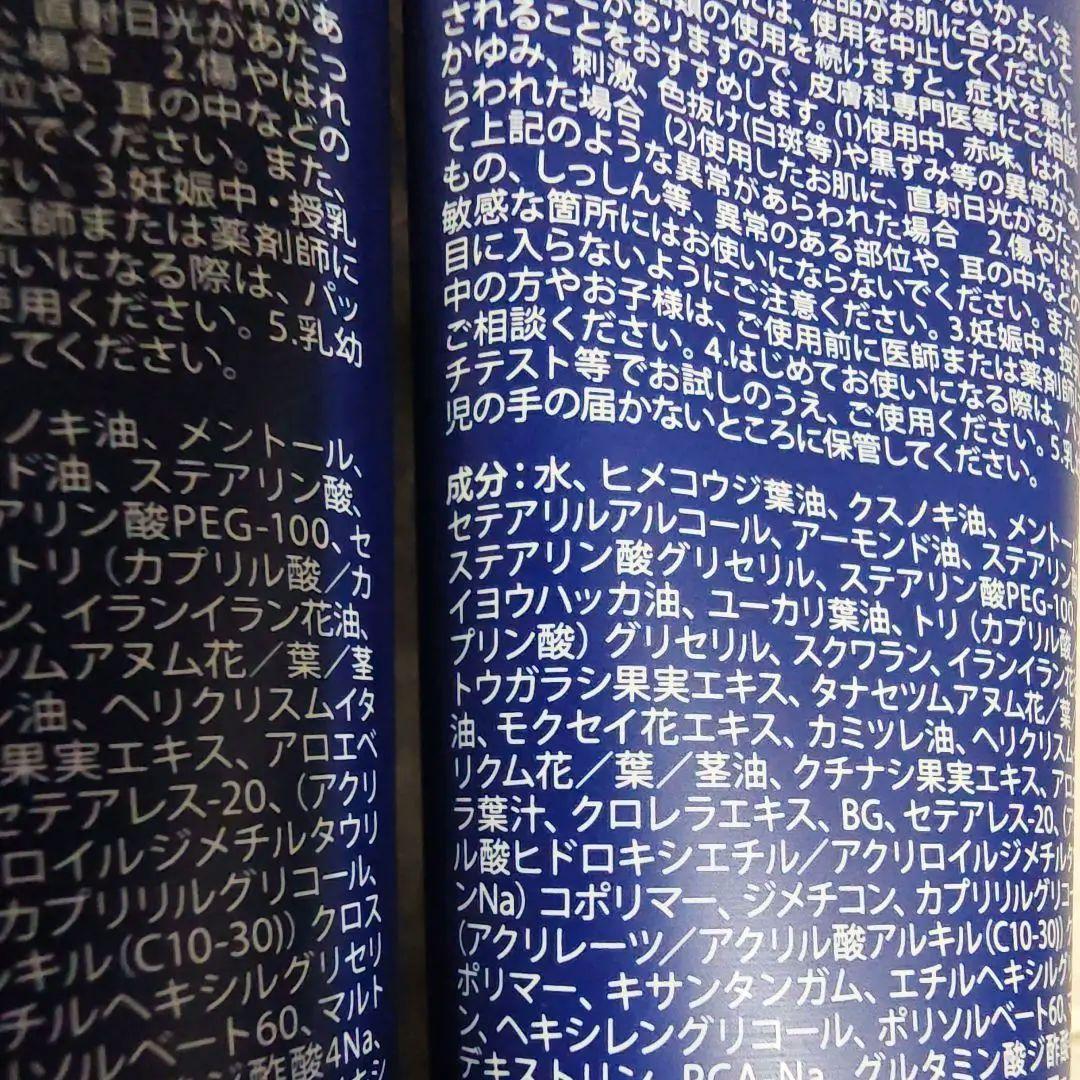 あ
直射日光があたっ
場合 2.傷やはれの
位や、耳の中などの
いでください。また、
さい。3.妊娠中・授乳
医師または薬剤師に
使いになる際は、パッ
使用ください。5.乳幼
してください。
スノキ油、メントール、
ド油、ステアリン酸、
アリン酸PEG-100、セ
トリ(カプリル酸/カ
ン、イランイラン花油、
ツムアヌム花/葉/茎
油、ヘリクリスムイタ
果実エキス、アロエベ
セテアレス-20、(アクリ
ロイルジメチルタウリ
カプリリルグリコール、
キル(C10-30)) クロス
チルヘキシルグリセリ
ソルベート60、マルト
ジ酢酸4Na、
ないかよく注
品がお肌に合わないと
は、使用を中止してください。
品類の使用を続けますと、症状を悪化
されることがありますので、皮膚科専門医等にご相談
されることをおすすめします。(1)使用中、赤味、はれ、
かゆみ、刺激、色抜け(白斑等)や黒ずみ等の異常があ
らわれた場合 (2)使用したお肌に、直射日光があたっ
て上記のような異常があらわれた場合 2.傷やはれ
もの、しっしん等、異常のある部位や、耳の中などの
敏感な箇所にはお使いにならないでください。また
目に入らないようにご注意ください。3.妊娠中・授
中の方やお子様は、ご使用前に医師または薬剤師
ご相談ください。4.はじめてお使いになる際は、パ
チテスト等でお試しのうえ、ご使用ください。5.乳
児の手の届かないところに保管してください。
成分:水、ヒメコウジ葉油、クスノキ油、メントール
セテアリルアルコール、アーモンド油、ステアリン
ステアリン酸グリセリル、ステアリン酸PEG-100
イヨウハッカ油、ユーカリ葉油、トリ(カプリル酸
プリン酸)グリセリル、スクワラン、イランイラン花
トウガラシ果実エキス、タナセツムアヌム花/葉
油、モクセイ花エキス、カミツレ油、ヘリクリスム
リクム花/葉/茎油、クチナシ果実エキス、アロ
ラ葉汁、クロレラエキス、BG、セテアレス-20、(ア
ル酸ヒドロキシエチル/アクリロイルジメチルタ
ンNa)コポリマー、ジメチコン、カプリリルグリコ
(アクリレーツ/アクリル酸アルキル(C10-30))
ポリマー、キサンタンガム、エチルヘキシルグ
ン、ヘキシレングリコール、ポリソルベート60、
デキストリン、PCA-Na、グルタミン酸ジ酢酸